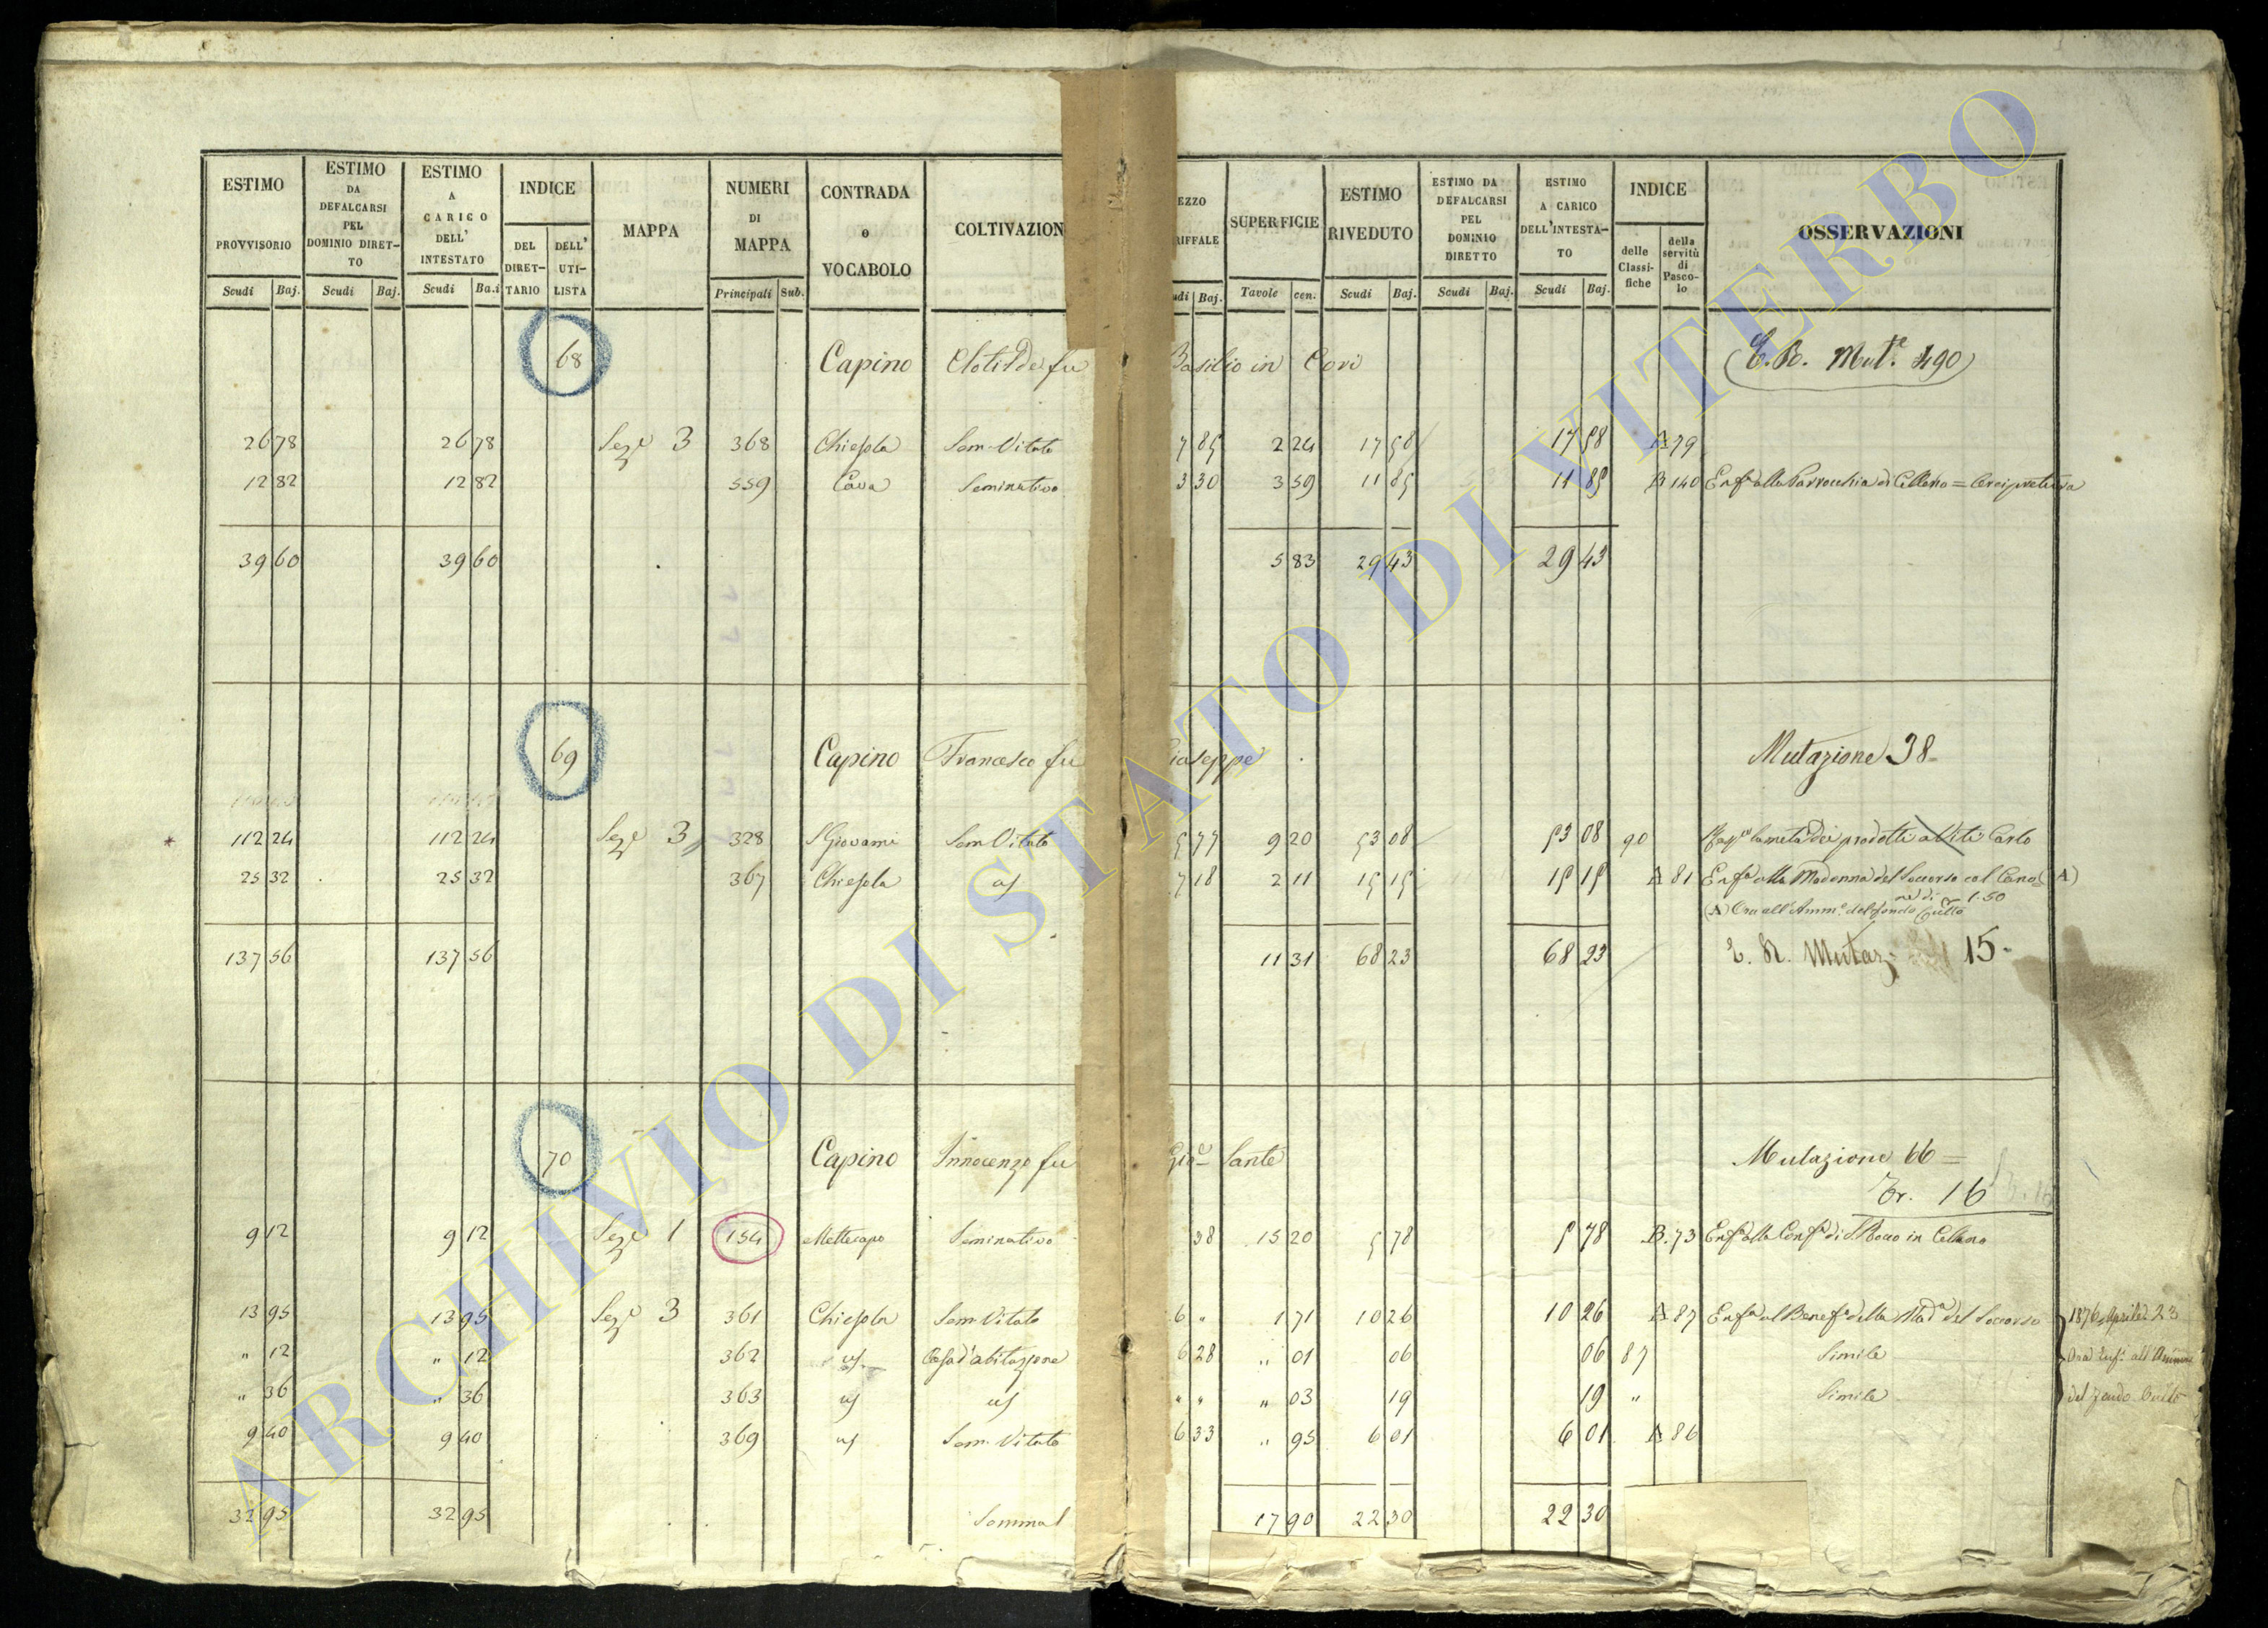 ESTIMO PROVVISORIO Scudi Baj.
ESTIMO DA DEFALCARSI PEL DOMINIO DIRET- TO Scudi Baj.
ESTIMO A CARICO DELL' INTESTATO Scudi Ba.i
INDICE DEL DIRET- TARIO DELL' UTI- LISTA
MAPPA
NUMERI DI MAPPA Principali Sub.
CONTRADA o VOCABOLO
COLTIVAZION
EZZO RIFFALE udi Baj.
SUPERFICIE Tavole cen.
ESTIMO RIVEDUTO Scudi Baj.
ESTIMO DA DEFALCARSI PEL DOMINIO DIRETTO Scudi Baj.
ESTIMO A CARICO DELL'INTESTA- TO Scudi Baj.
INDICE delle Classi- fiche della servitù di Pasco- lo
OSSERVAZIONI
68 Capino Clotilde fu Basilio in Covi (E.R. Mut.e 490)
26 78 26 78 Seze 3 368 Chiesola Sem. Vitato 7 85 2 24 17 58 17 58 A 79
12 82 12 82 559 Cava Seminativo 3 30 3 59 11 85 11 85 B 140 Enfa alla Parrocchia di Celleno = Arcipretura
39 60 39 60 5 83 29 43 29 43
69 Capino Francesco fu Giuseppe Mutazione 38
112 24 112 24 Seze 3 328 S Giovanni Sem Vitato 5 77 9 20 53 08 53 08 90 la metà dei prodotti a Viti Carlo
25 32 25 32 367 Chiesola us 7 18 2 11 15 15 15 15 A 81 Enfa alla Madonna del Soccorso col Cano (A)
ne di 1.50
(A) Ora all'Amme del fondo Culto
137 56 137 56 11 31 68 23 68 23 E. R. Mutaz 15
70 Capino Innocenzo fu Gioa Sante Mutazione 66
Er. 16
9 12 9 12 Seze 1 154 Mettecapo Seminativo 38 15 20 5 78 5 78 B. 73 Enfa alla Confa di S. Rocco in Celleno
13 95 13 95 Seze 3 361 Chiesola Sem. Vitato 6 " 1 71 10 26 10 26 A 87 Enfa al Benefo della Mada del Soccorso 1876 Aprile 23
" 12 " 12 362 us Casa d'abitazione 6 28 " 01 06 06 87 Simile Ora Enf. all'Ammne
" 36 " 36 363 us us " " " 03 19 19 " Simile del fondo Culto
9 40 9 40 369 us Sem. Vitato 6 33 " 95 6 01 6 01 A 86
32 95 32 95 Somma 17 90 22 30 22 30
ARCHIVIO DI STATO DI VITERBO